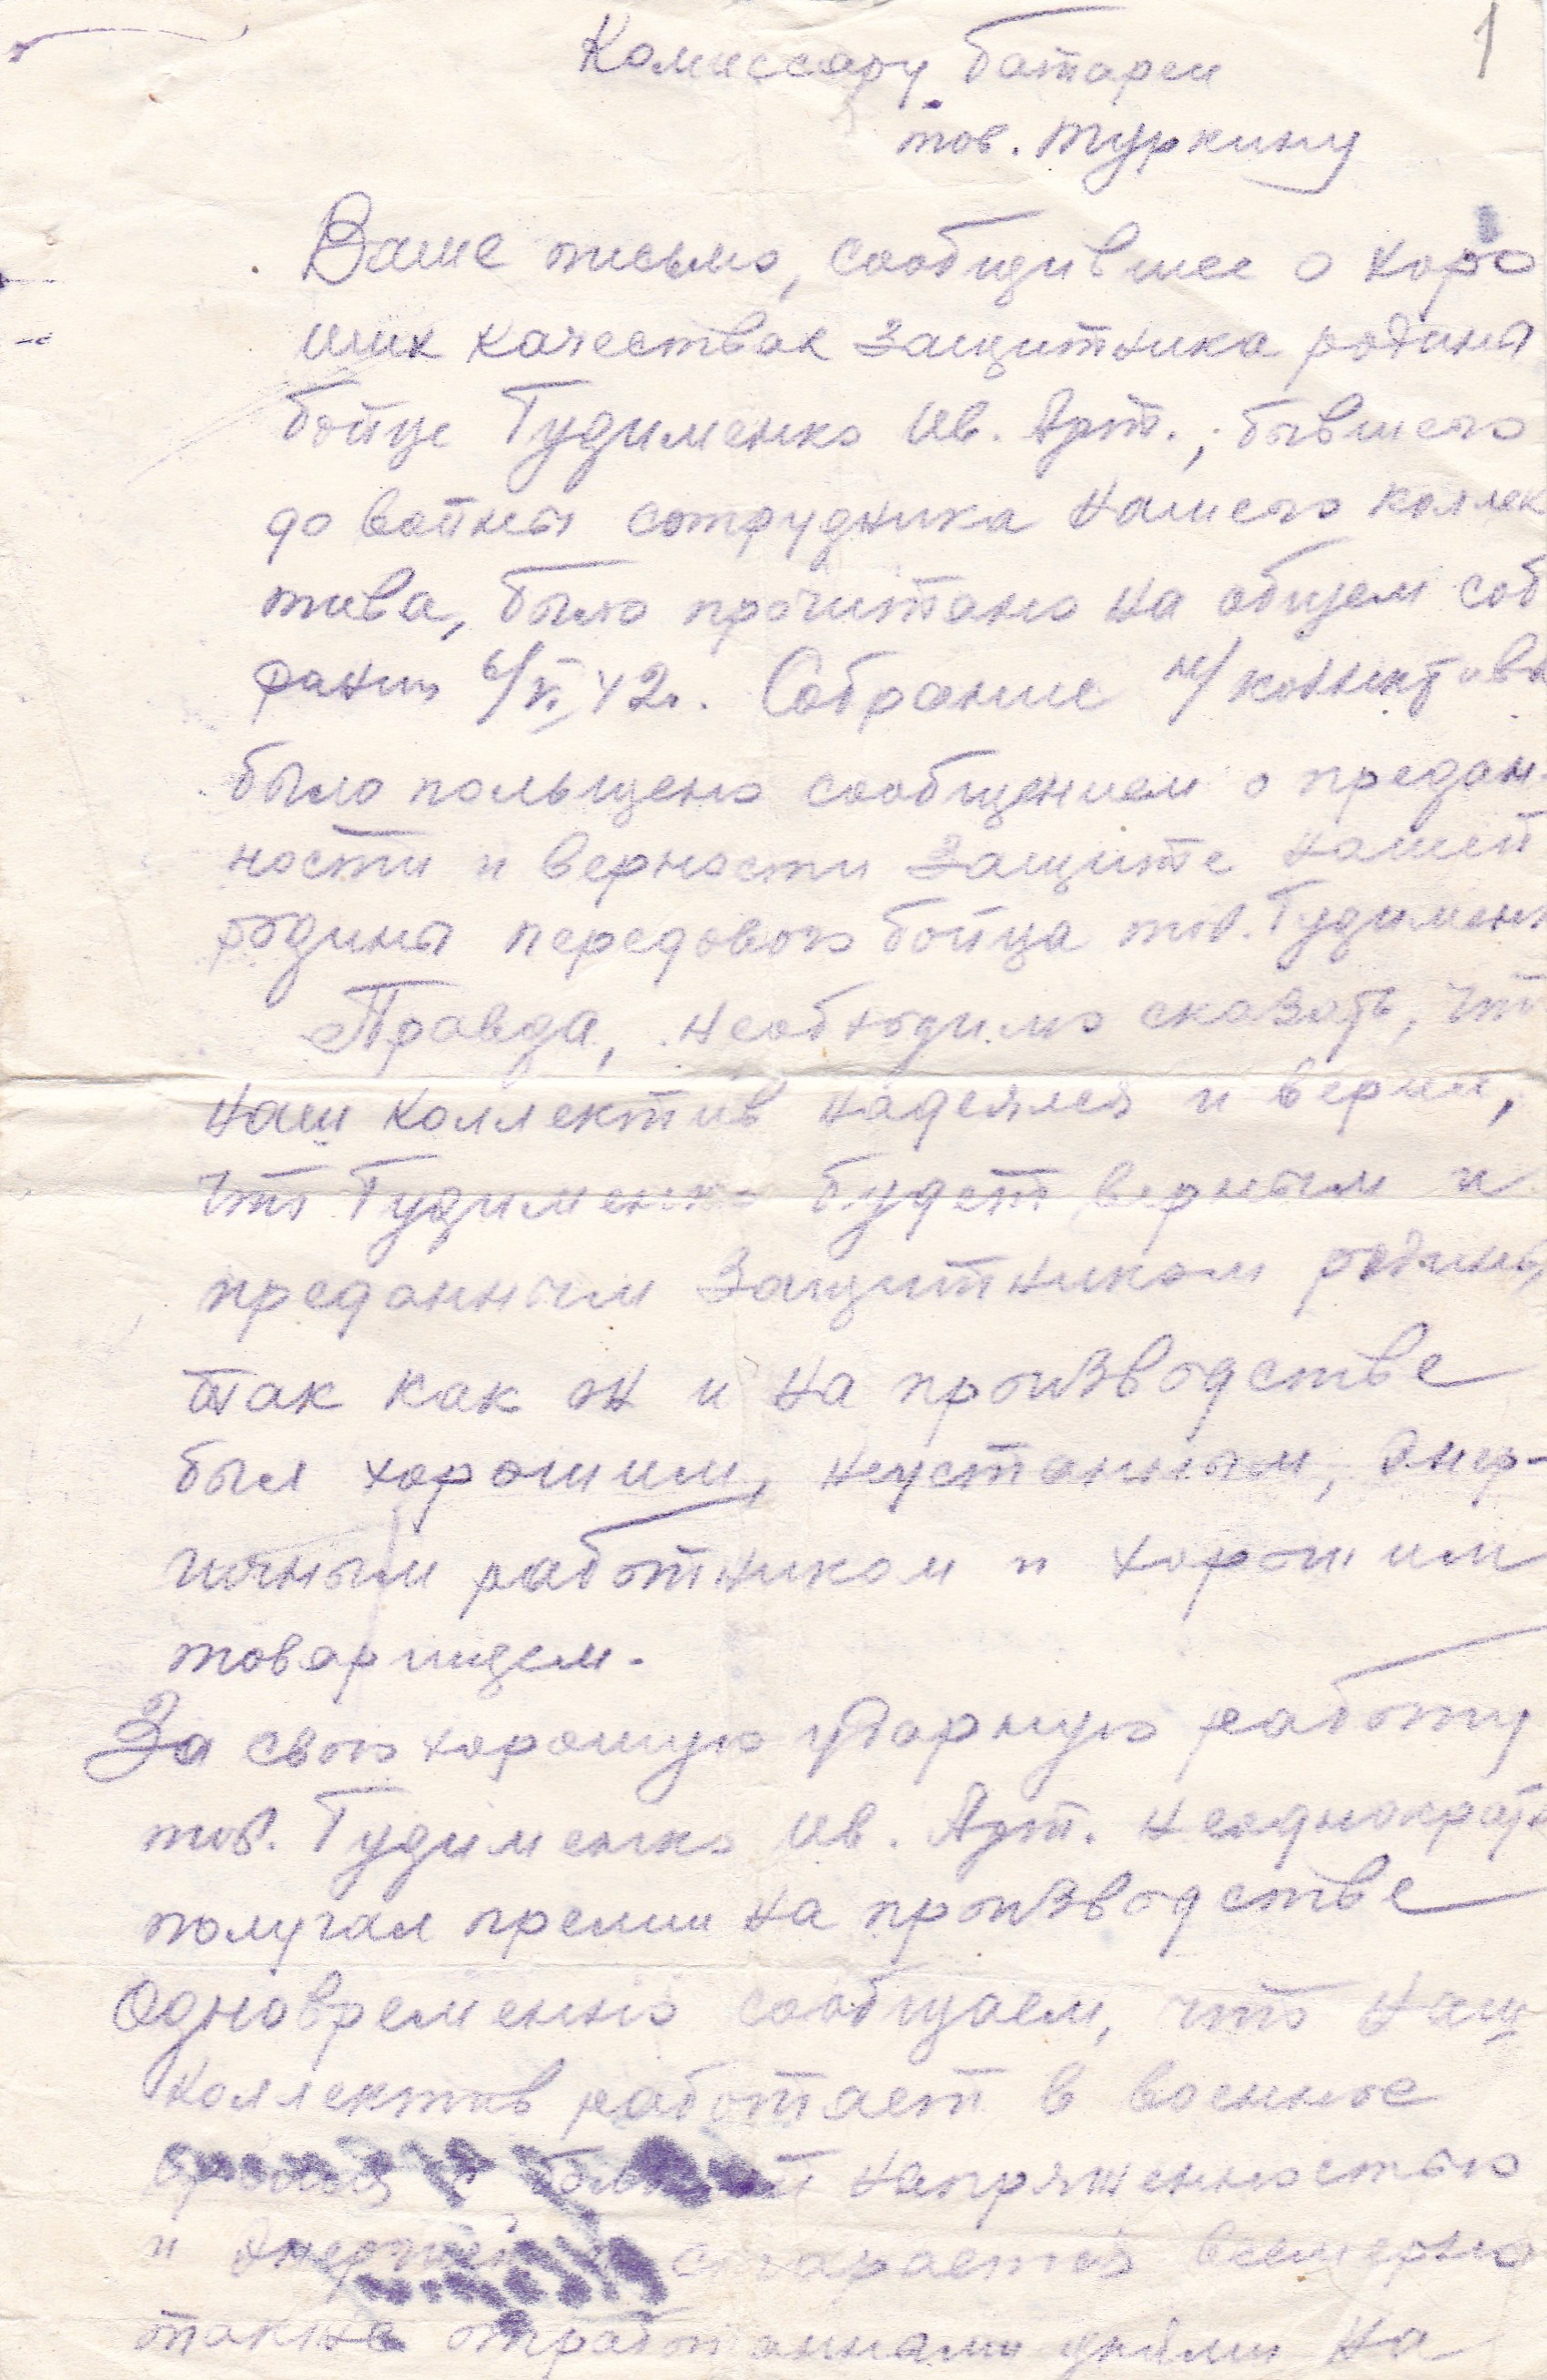 1
Комиссару батареи
тов. Туркину
Ваше письмо, сообщившее о хоро
ших качествах защитника родины
бойце Гудименко Ив. Арт., бывшего
до войны сотрудника нашего коллек
тива, было прочитано на общем соб
рании 6/VI 42г. Собрание н/коллектива
было польщено сообщением о предан-
ности и верности защите нашей
родины передового бойца тов. Гудименк
Правда, необходимо сказать, что
наш коллектив надеялся и верил,
что Гудименко будет верным и
преданным защитником родины,
так как он и на производстве
был хорошим, неустанным, энер-
гичным работником и хорошим
товарищем.
За свою хорошую ударную работу
тов. Гудименко Ив. Арт. неоднократн
получал премии на производстве
Одновременно сообщаем, что наш
коллектив работает в военное
время с большой напряженностью
и энергией старается всемерно
также отработанными днями на